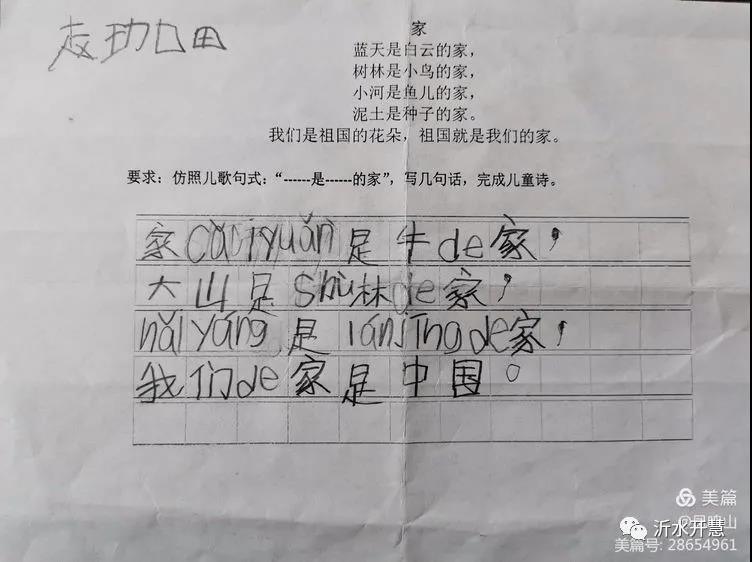 家
蓝天是白云的家，
树林是小鸟的家，
小河是鱼儿的家，
泥土是种子的家。
我们是祖国的花朵，祖国就是我们的家。
要求：仿照儿歌句式：“------是------的家”，写几句话，完成儿童诗。
家 是牛de家，
大山是shù林de家，
hǎiyáng是lánjīngde家，
我们de家是中国。
美篇
沂水开慧
美篇号: 28654961